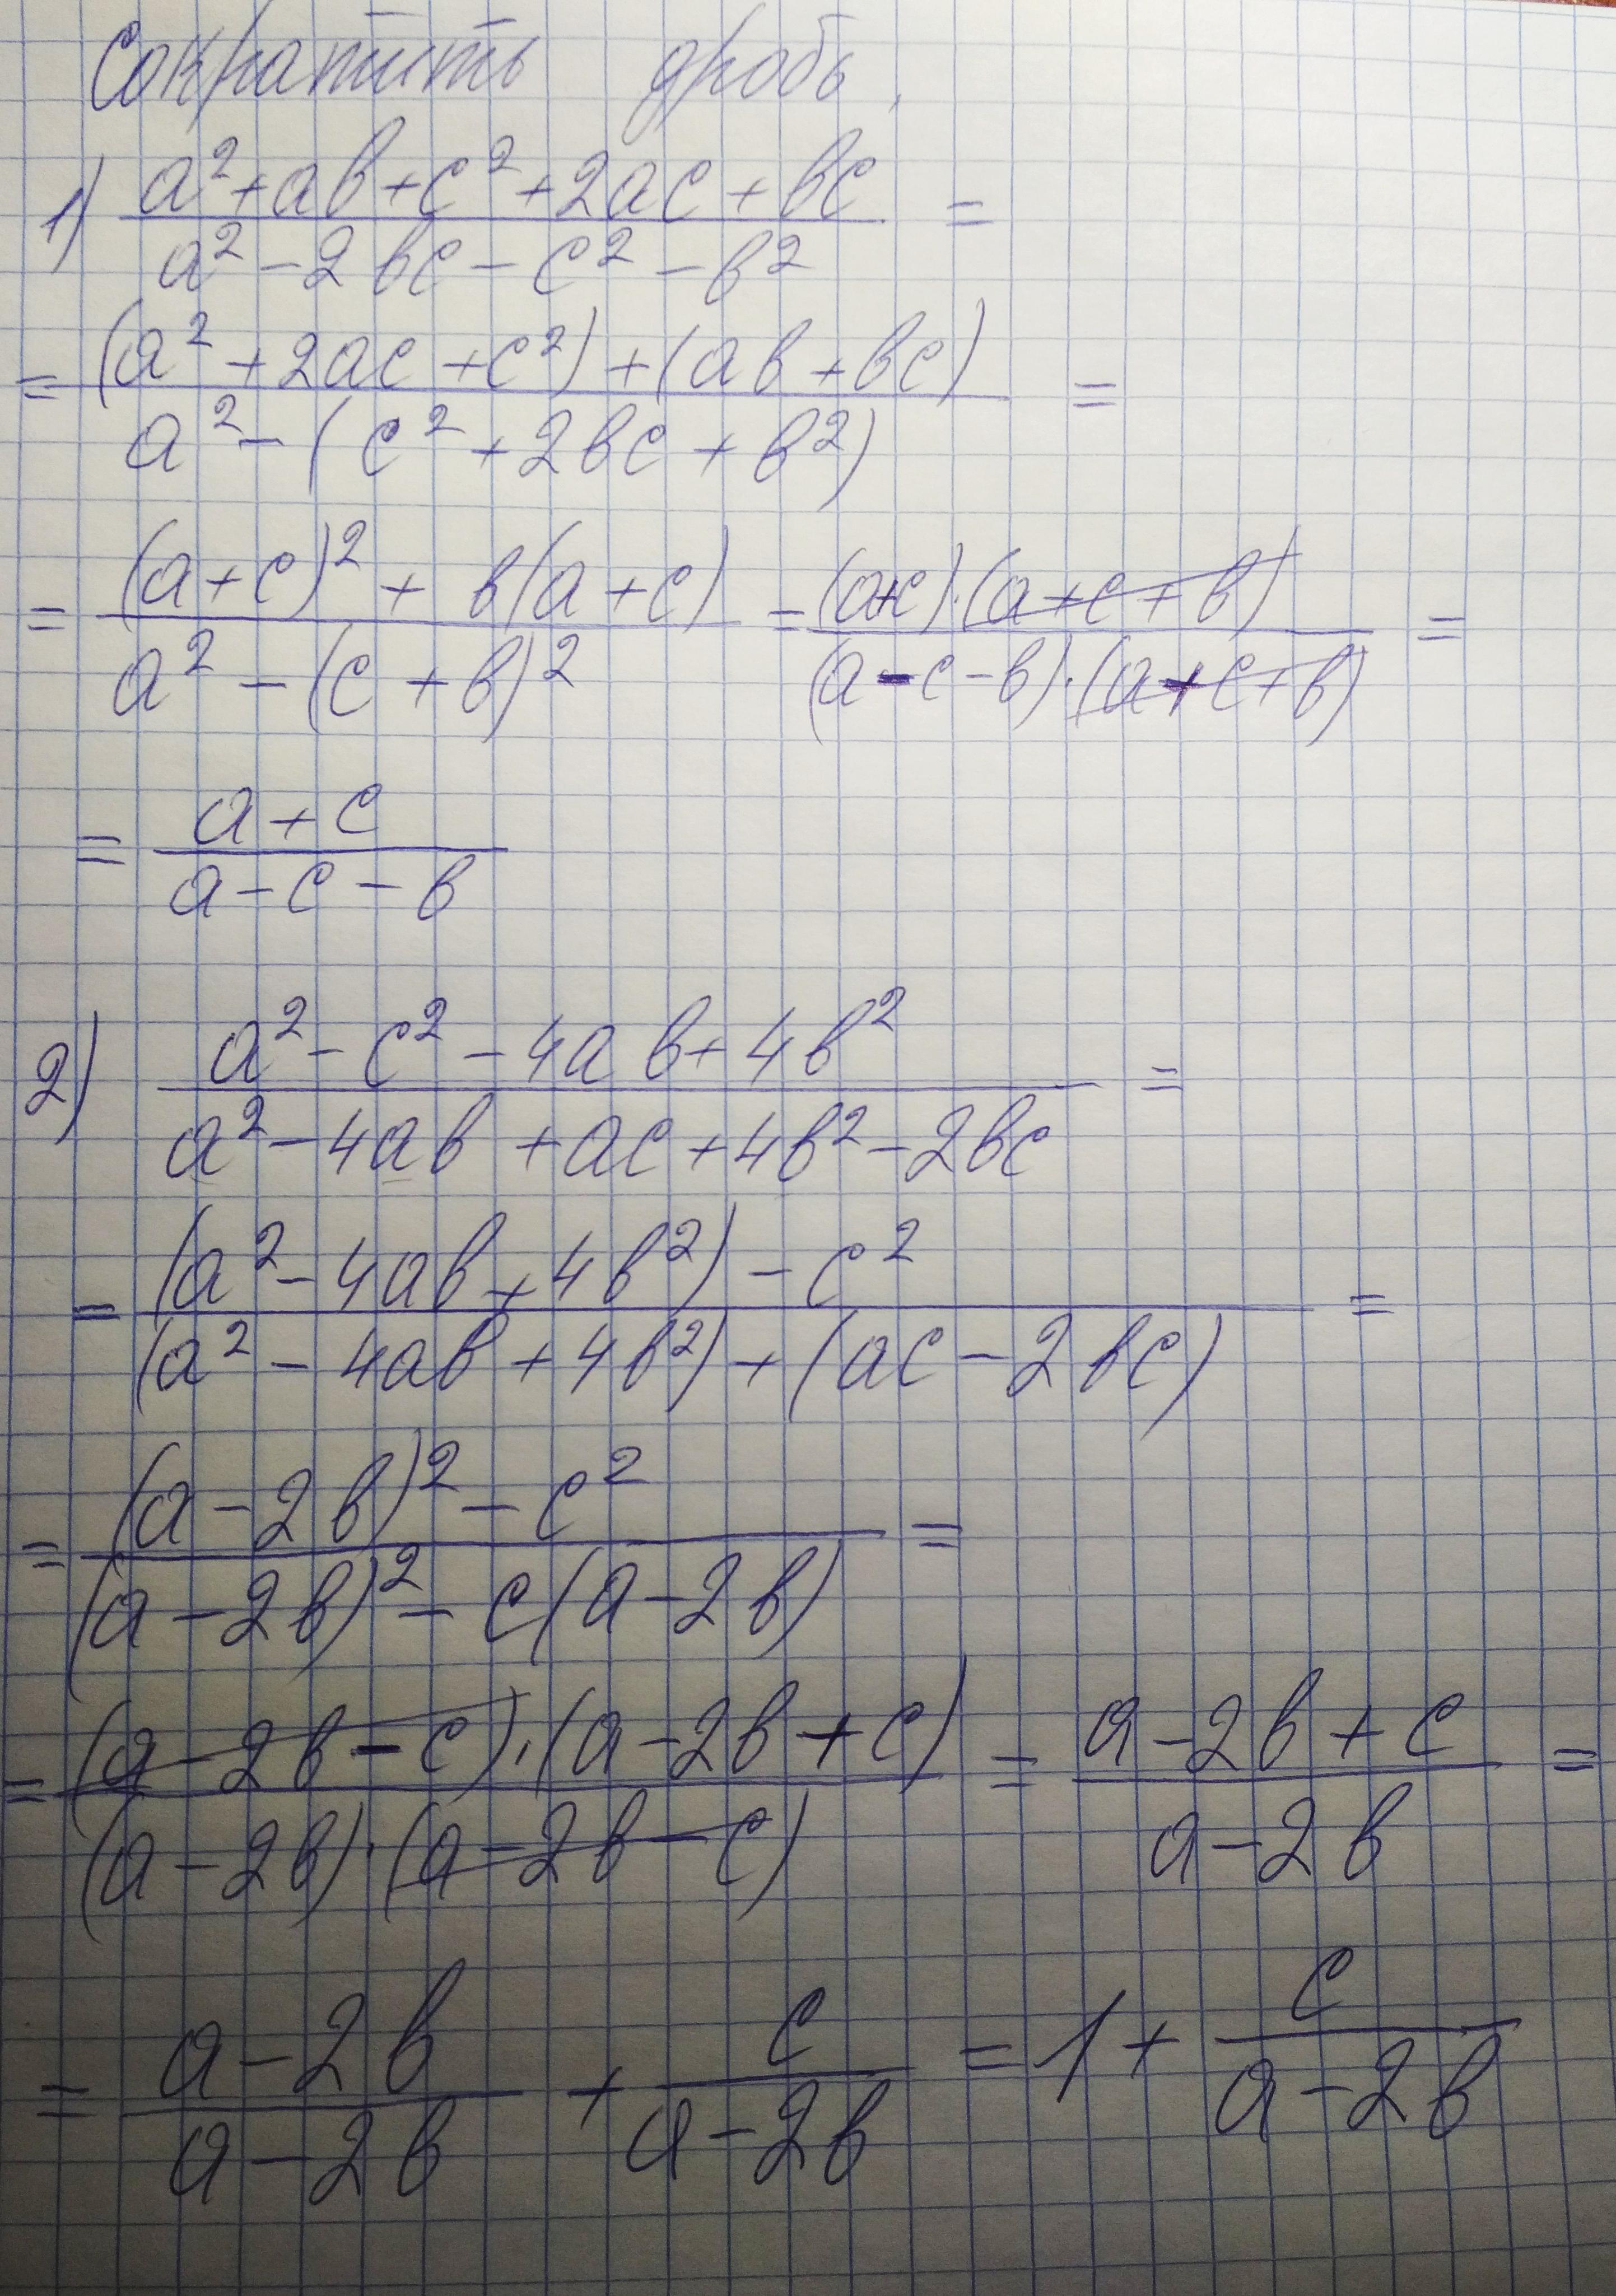 Сократить дробь,
1) (a²+ab+c²+2ac+bc)/(a²-2bc-c²-b²) =
= ((a²+2ac+c²)+(ab+bc))/(a²-(c²+2bc+b²)) =
= ((a+c)²+b(a+c))/(a²-(c+b)²) = ((a+c)·(a+c+b))/((a-c-b)·(a+c+b)) =
= (a+c)/(a-c-b)
2) (a²-c²-4ab+4b²)/(a²-4ab+ac+4b²-2bc) =
= ((a²-4ab+4b²)-c²)/((a²-4ab+4b²)+(ac-2bc)) =
= ((a-2b)²-c²)/((a-2b)²-c(a-2b)) =
= ((a-2b-c)·(a-2b+c))/((a-2b)·(a-2b-c)) = (a-2b+c)/(a-2b) =
= (a-2b)/(a-2b) + c/(a-2b) = 1 + c/(a-2b)